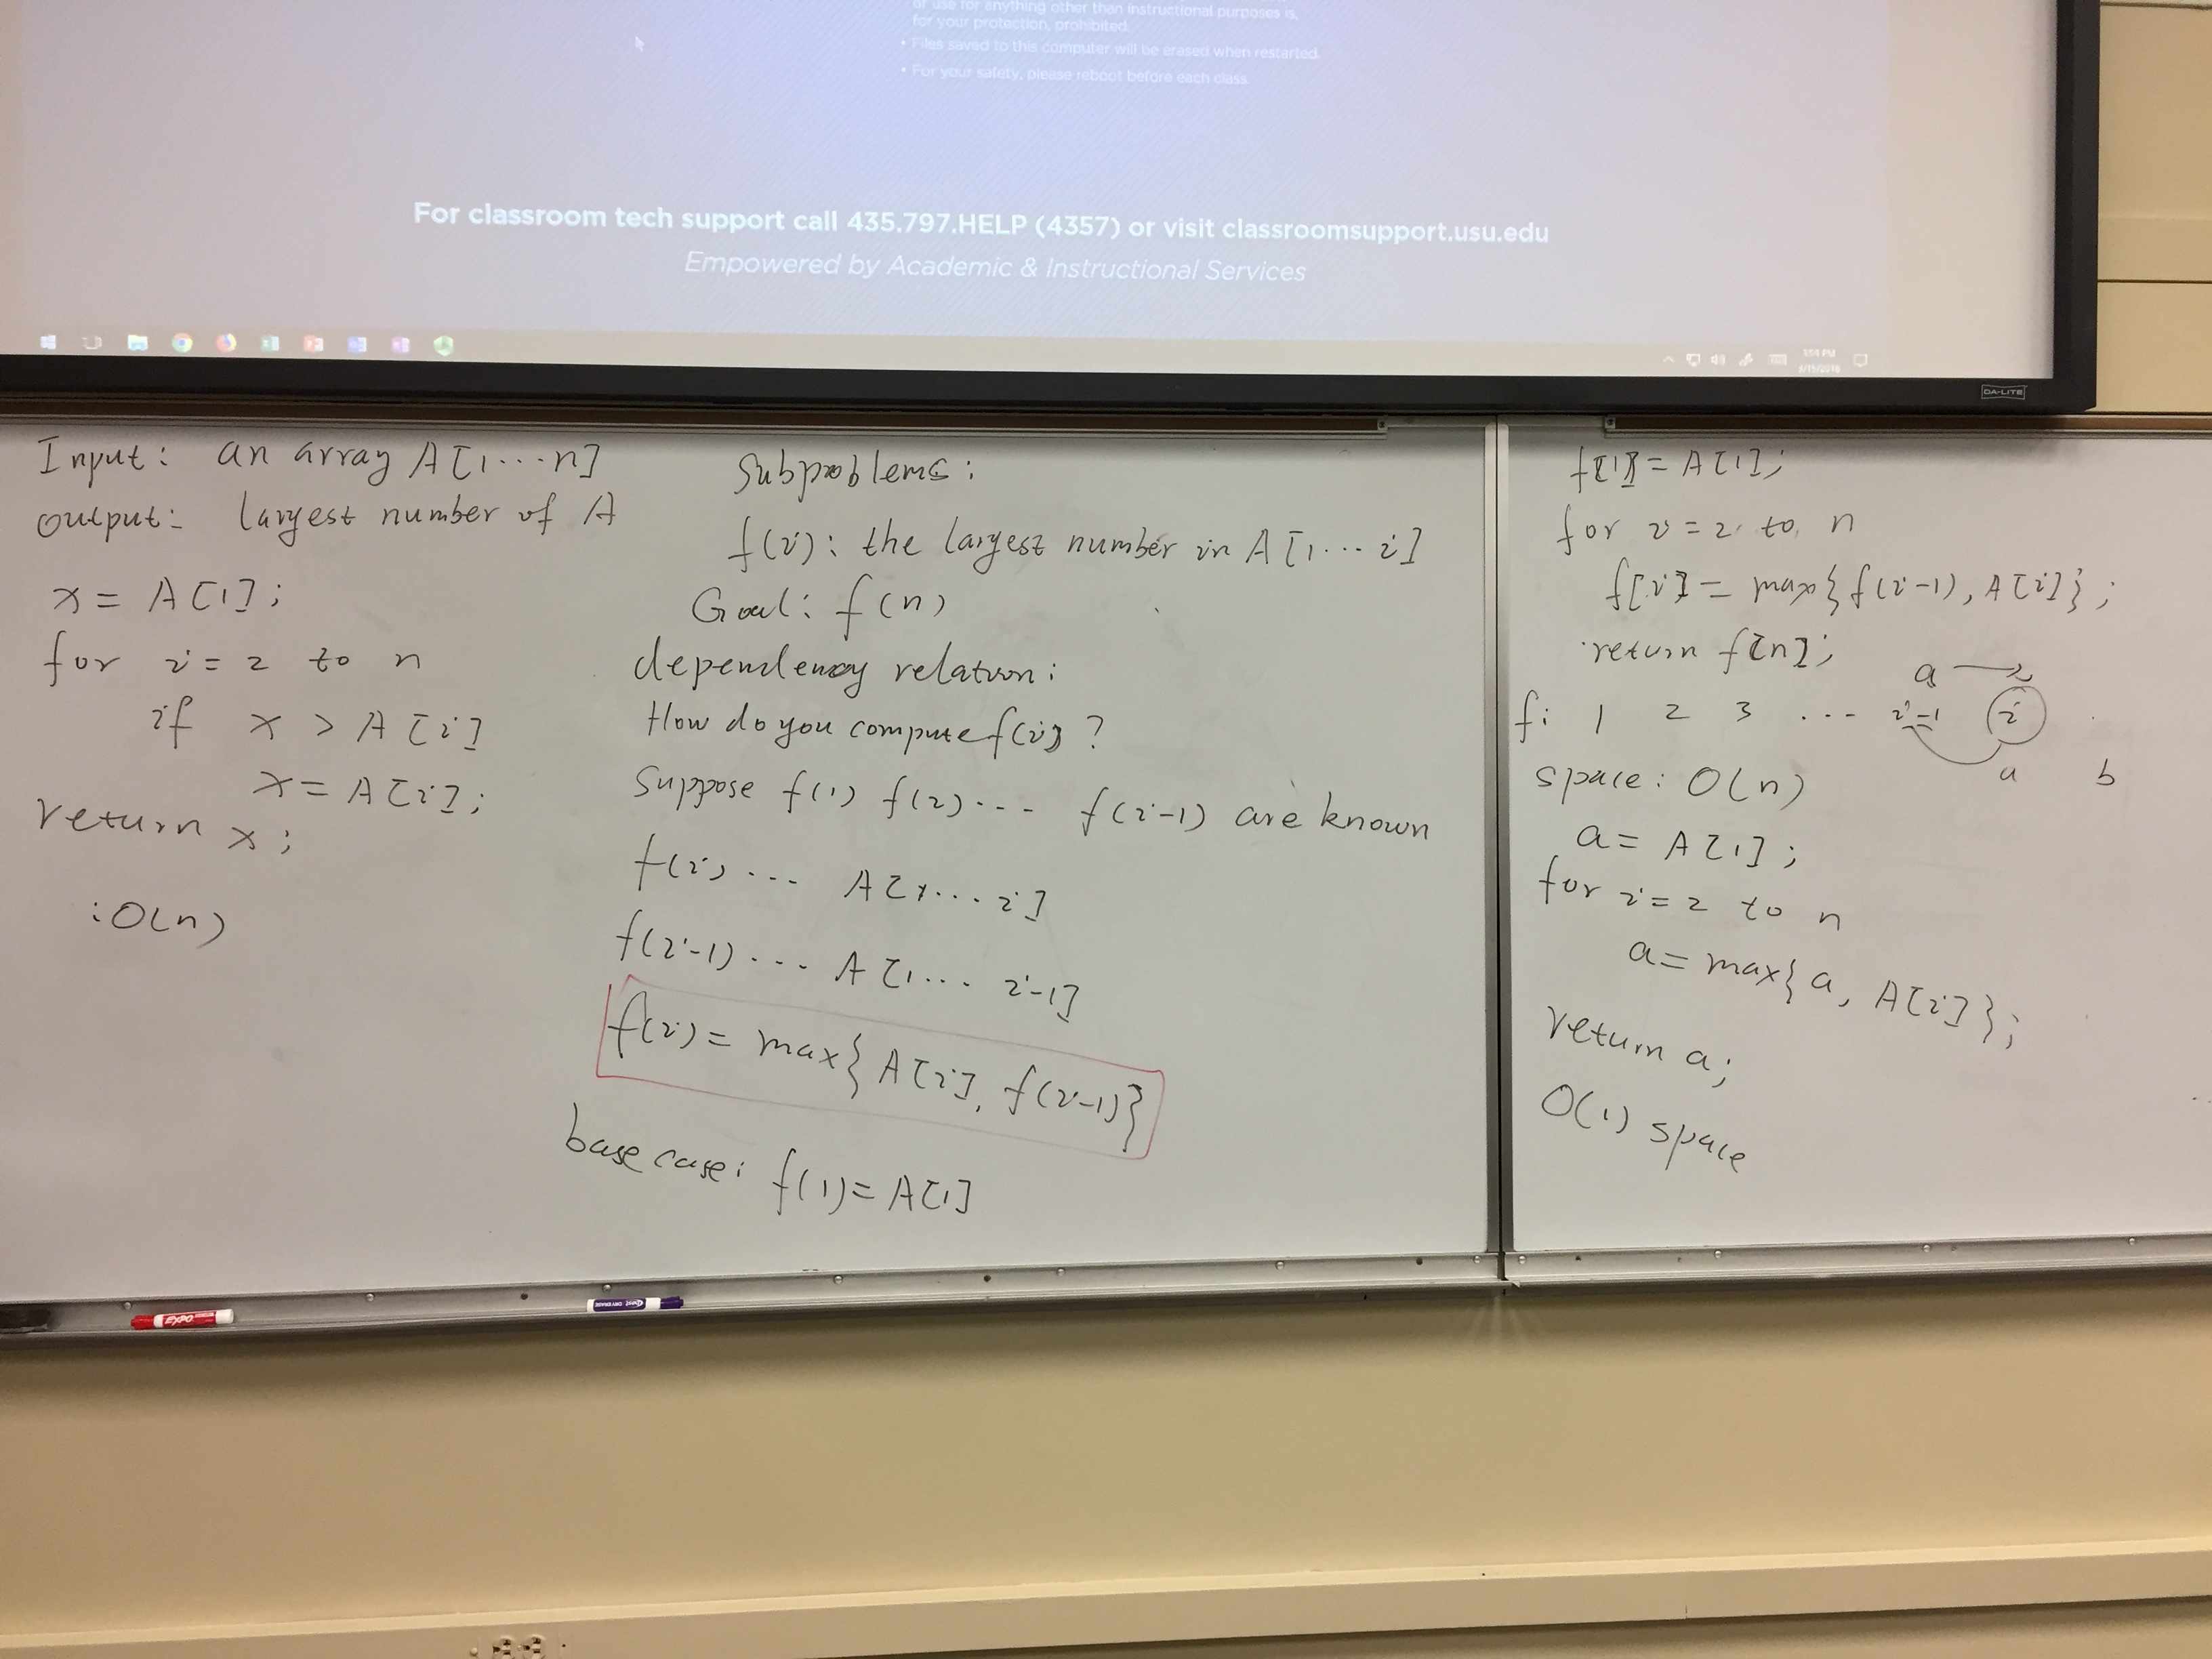 or use for anything other than instructional purposes is,
for your protection, prohibited.
• Files saved to this computer will be erased when restarted.
• For your safety, please reboot before each class.
For classroom tech support call 435.797.HELP (4357) or visit classroomsupport.usu.edu
Empowered by Academic & Instructional Services
DA-LITE
Input: an array A[1...n]
output: largest number of A
x = A[1];
for i = 2 to n
if x > A[i]
x = A[i];
return x;
: O(n)
Subproblems:
f(i): the largest number in A[1...i]
Goal: f(n)
dependency relation:
How do you compute f(i)?
Suppose f(1) f(2) ... f(i-1) are known
f(i) ... A[1...i]
f(i-1) ... A[1... i-1]
f(i) = max{A[i], f(i-1)}
base case: f(1) = A[1]
f[1] = A[1];
for i = 2 to n
f[i] = max{f(i-1), A[i]};
return f[n];
a
f: 1 2 3 ... i-1 i
a b
space: O(n)
a = A[1];
for i = 2 to n
a = max{a, A[i]};
return a;
O(1) space
EXPO